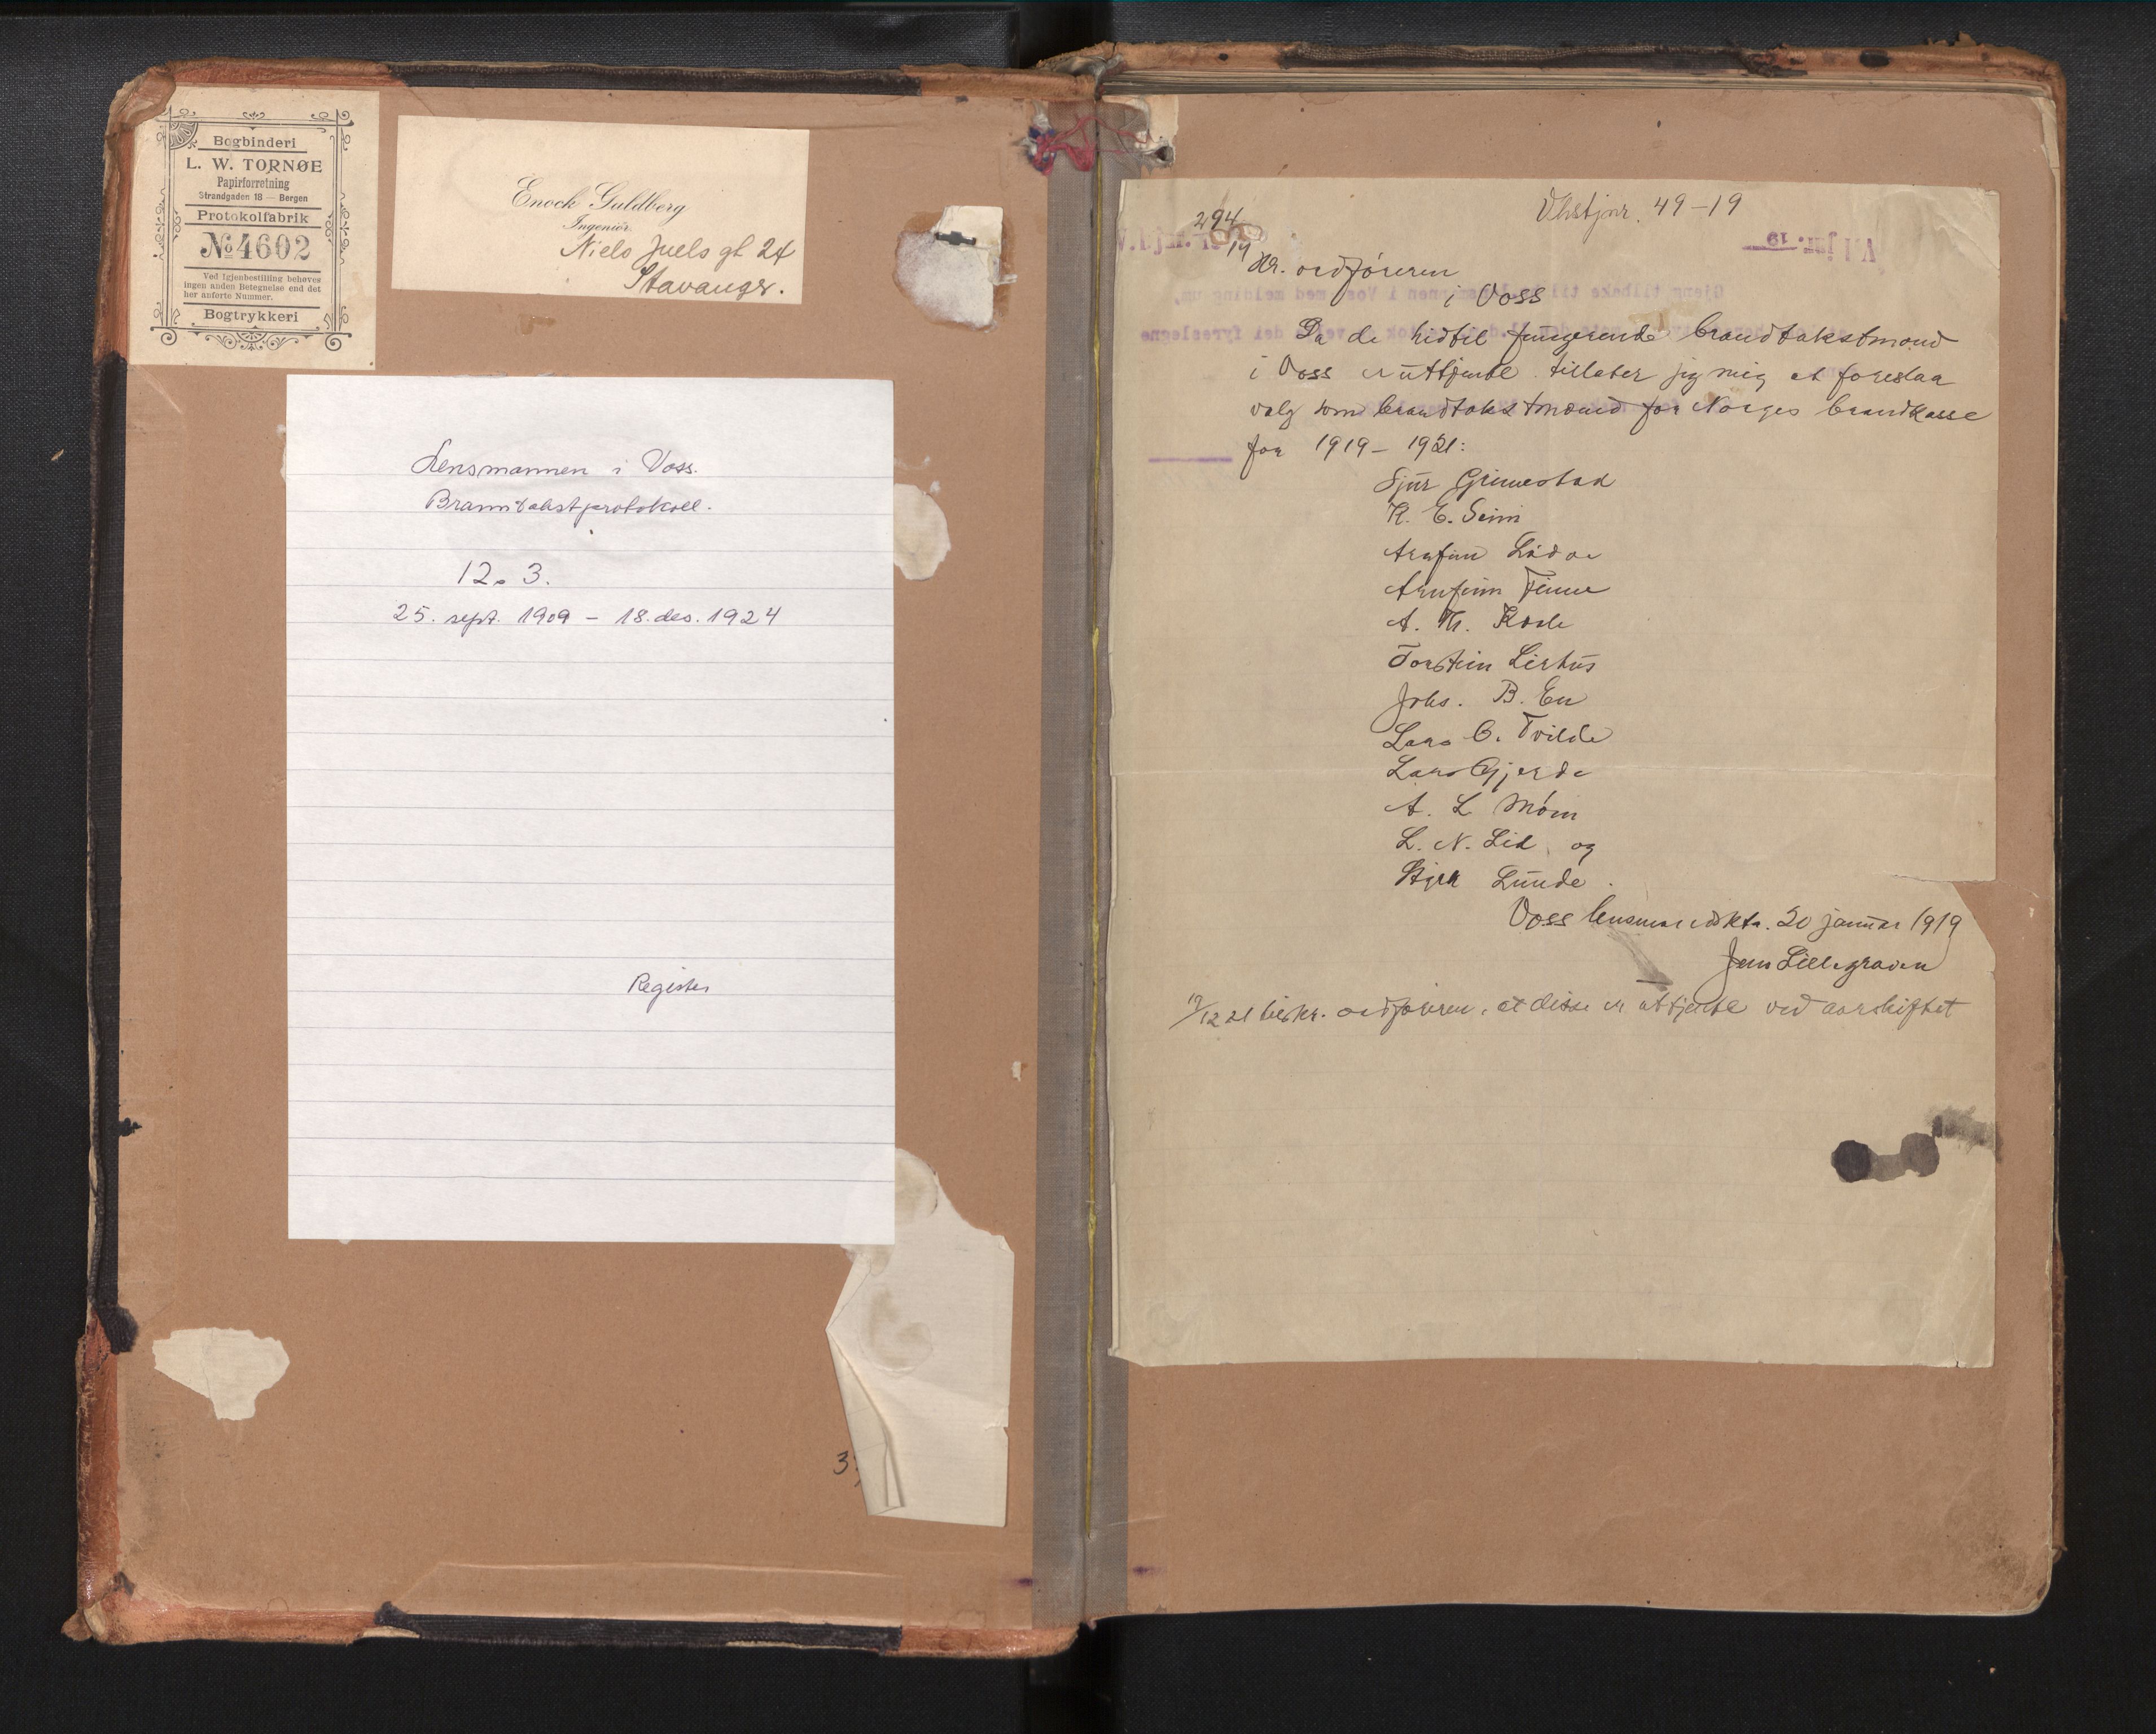 Bogbinderi
L. W. TORNØE
Papirforretning
Strandgaden 18 — Bergen
Protokolfabrik
No 4602
Ved Igjenbestilling behøves
ingen anden Betegnelse end det
her anførte Nummer.
Bogtrykkeri
Enock Guldberg
Ingeniör.
Niels Juels gt 24
Stavanger.
Lensmannen i Voss.
Branntakstprotokoll.
12. 3.
25. sept. 1909 – 18. des. 1924
Register
3
294
19
Vhstjnr. 49-19
Hr. ordføreren
i Voss
Da de hidtil fungerende brandtakstmænd
i Voss er uttjente tillater jeg mig at foreslaa
valg som brandtakstmænd for Norges brandkasse
for 1919 – 1921:
Sjur Grimestad
K. E. Seim
Arnfinn
Arnfinn Finne
A. K.
Torstein Lirhus
Johs. B. En
Lars O. Tvilde
Lars Gjerde
A. L Møen
L. N. Lid og
Styrk Lunde.
Voss lensmandsktr. 20 januar 1919
Jens Lillegraven
19/12 21 ordføreren, at disse er uttjente ved aarskiftet